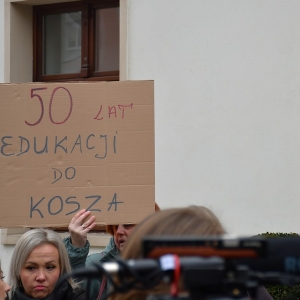 50 LAT
EDUKACJI
DO
KOSZA